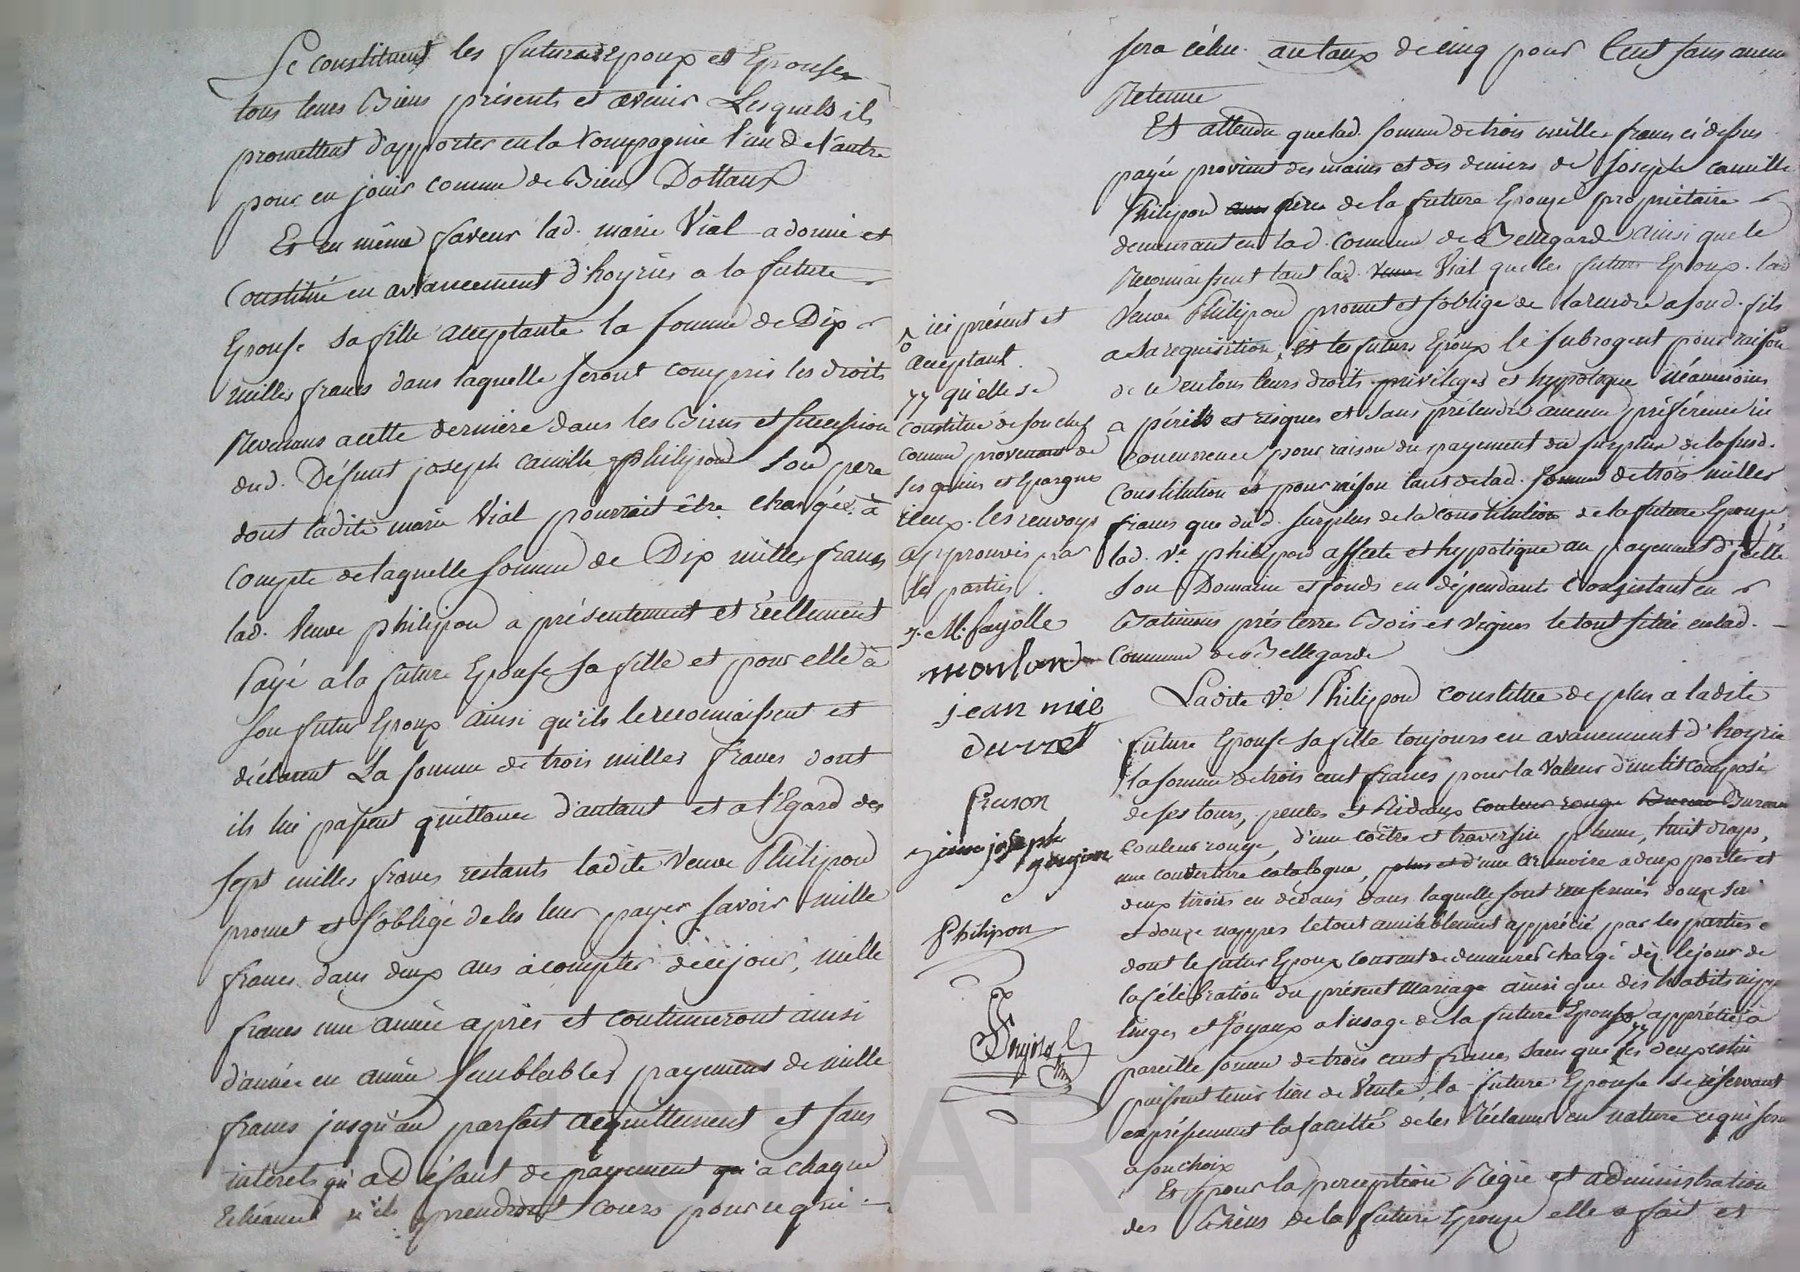 Se constituent les futurs Epoux et Epouse
tous leurs Biens présents et avenir Lesquels ils
promettent d'apporter en la Compagnie l'un de l'autre
pour en jouir comme de Biens Dottaux
Et en même faveur lad. marie Vial a donné et
Constitué en avancement d'hoyries a la future
Epouse sa fille acceptante la somme de Dix
milles francs dans laquelle seront compris les droits
Revenans a cette dernière dans les Biens et succession
dud. Défunt joseph camille philipond son pere
dont ladite marie Vial pourrait être chargée à
compte de laquelle somme de Dix milles francs
lad. Veuve philipond a présentement et réellement
Payé a la future Epouse sa fille et pour elle à
son futur Epoux ainsi qu'ils le reconnaissent et
déclarent La somme de trois milles francs dont
ils lui passent quittance d'autant et a l'Egard des
sept milles francs restants ladite Veuve Philipond
promet et s'oblige de les leur payer savoir mille
francs dans deux ans à compter de ce jour, mille
francs une année après et continueront ainsi
d'année en année semblables payemens de mille
francs jusqu'au parfait acquittement et sans
intérets qu'a défaut de payement qu'a chaque
Echéance ils prendront cours pour ce qui
ici présent et
acceptant
77 qu'elle se
constitue de son chef
comme provenant de
ses gains et Epargnes
ceux. les renvoys
approuvés par
les parties
J. M. fayolle
jean mie
duvret
frason
jean joseph
goujon
Philipon
sera échu au taux de cinq pour Cent sans aucune
Retenue
Et attendu que lad. somme de trois milles francs ci dessus
payée provient des mains et des deniers de Joseph camille
Philipond pére de la future Epouse propriétaire
demeurant en lad. Commune de Bellegarde ainsi que le
Reconnaissent tant lad. Veuve Vial que les futurs Epoux. lad
Veuve Philipond promet et s'oblige de la rendre a sond. fils
a sa requisition, et les futurs Epoux le subrogent pour raison
de ce en tous leurs droits privileges et hypoteque néanmoins
a périls et risques et sans prétendre aucune préférence ni
concurrence pour raison du payement du surplus de lasusd.
Constitution et pour raison tant de lad. somme de trois milles
francs que dud. surplus de la constitution de la future Epouse
lad. Ve philipond affecte et hypotique au payement d'icelle
son Domaine et fonds en dépendants Consistant en
Batimens prés terres Bois et Vignes le tout situé en lad.
Commune de Bellegarde
Ladite Ve Philipond constitue de plus a ladite
future Epouse sa fille toujours en avancement d'hoyrie
la somme de trois cent francs pour la Valeur d'un lit composé
de ses tours, pentes et Rideaux couleur rouge
couleur rouge, d'une coêtre et traversin plume, huit draps,
une couverture catalogne, plus et d'une armoire a deux portes et
deux tiroirs en dedans dans laquelle sont renfermés douze
et douze nappes le tout amiablement apprécié par les parties
dont le futur Epoux consent de demeurer chargé dès le jour de
la célébration du présent mariage ainsi que des habits nippes
linges et Joyaux a l'usage de la future Epouse 77 appréciés a
pareille somme de trois cent francs sans que les deux estim
puissent tenir lieu de Vente, la future Epouse se réservant
expréssement la faculté de les Réclamer en nature ce qui sera
a son choix
Et pour la perception Régie et administration
des Biens de la future Epouse elle a fait et